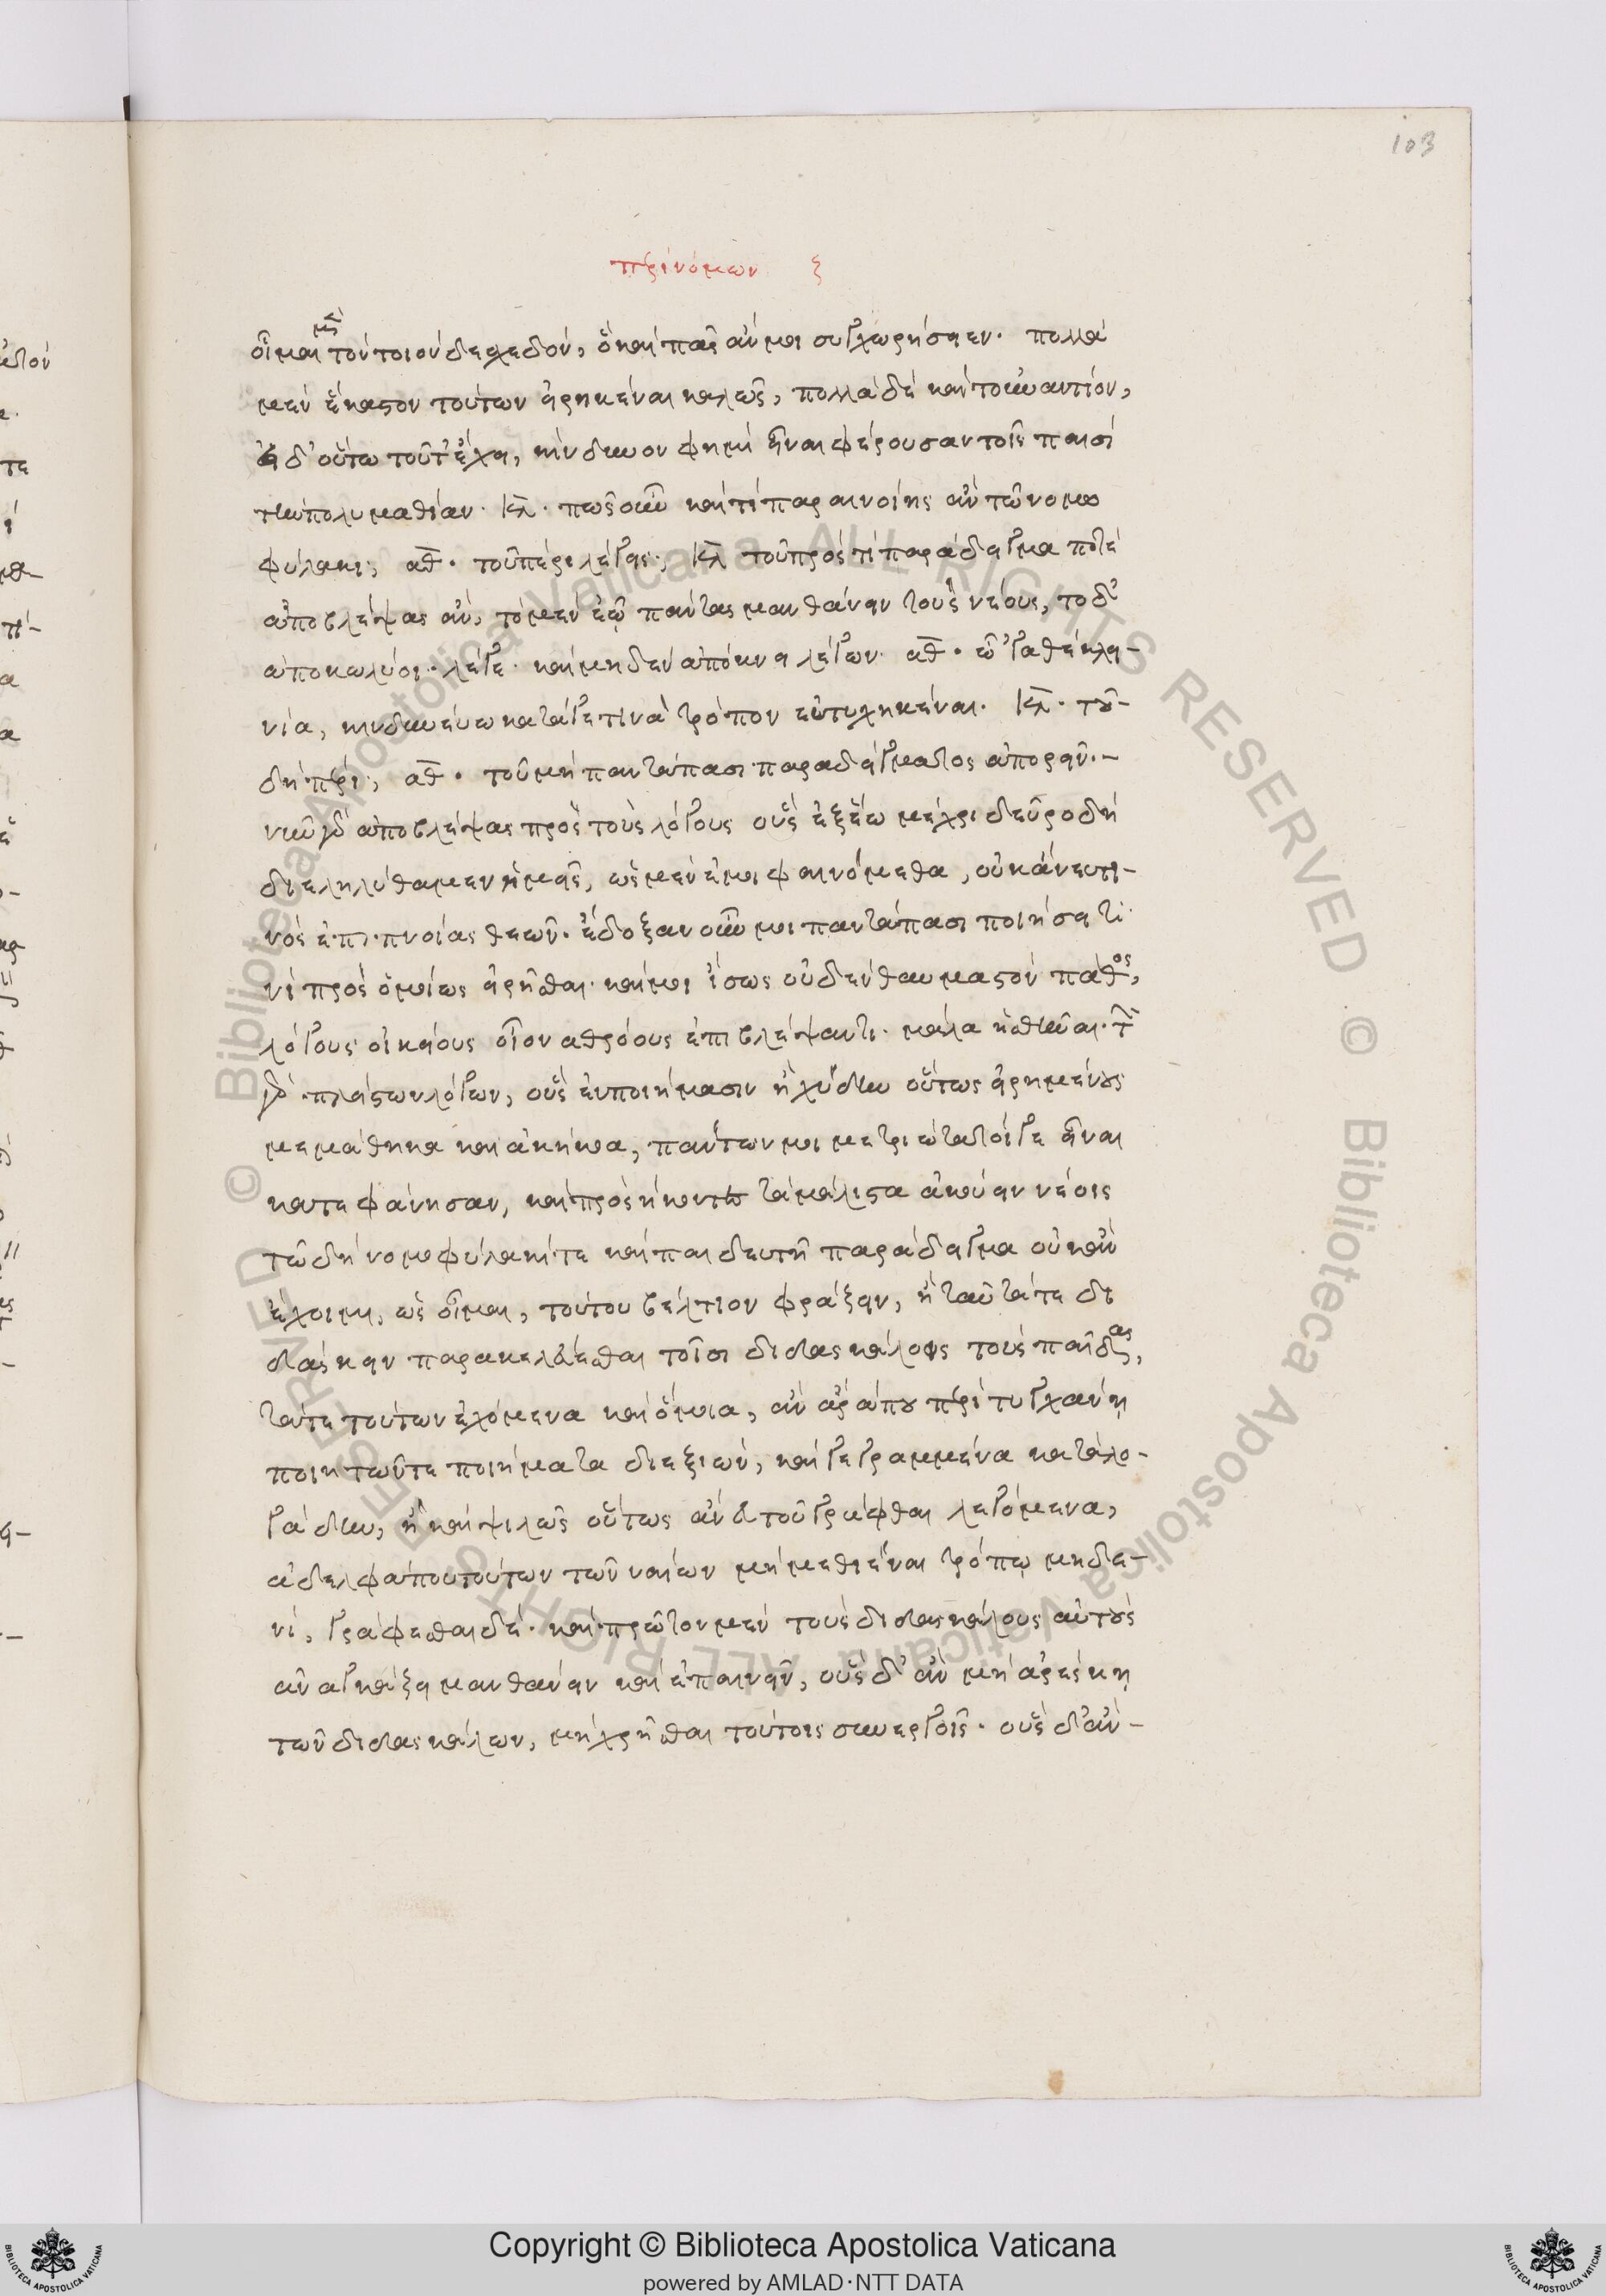 103
περὶ νόμων ζ
οἶμαι μὲν τὸν τοιόνδε σχεδόν, ὃ καὶ πᾶς ἄν μοι συγχωρήσειεν. πολλὰ
μὲν ἕκαστον τούτων εἰρηκέναι καλῶς, πολλὰ δὲ καὶ τοὐναντίον,
εἰ δ' οὕτω τοῦτ' ἔχει, κίνδυνον φημὶ εἶναι φέρουσαν τοῖς παισὶ
τὴν πολυμαθίαν. κλ. πῶς οὖν καὶ τί παραινοίης ἂν τῷ νομο
φύλακι; αθ. τοῦ πέρι λέγεις; κλ τοῦ πρὸς τί παράδειγμα ποτὲ
ἀποβλέψας ἄν, τὸ μὲν ἐῷ πάντας μανθάνειν τοὺς νέους, τὸ δ'
ἀποκωλύοι. λέγε. καὶ μηδὲν ἀπόκνει λέγων. αθ. ὦ 'γαθὲ κλει-
νία, κινδυνεύω κατά γε τινὰ τρόπον εὐτυχηκέναι. κλ. τοῦ
δὴ πέρι; αθ. τοῦ μὴ παντάπασι παραδείγματος ἀπορεῖν.-
νῦν γὰρ ἀποβλέψας πρὸς τοὺς λόγους οὓς ἐξ ἕω μέχρι δεῦρο δὴ
διεληλύθαμεν ἡμεῖς, ὡς μὲν ἐμοὶ φαινόμεθα, οὐκ ἄνευ τι-
νὸς ἐπιπνοίας θεῶν. ἔδοξαν οὖν μοι παντάπασι ποιήσει τι
νὶ προσομοίως εἰρῆσθαι. καί μοι ἴσως οὐδὲν θαυμαστὸν πάθος,
λόγους οἰκείους οἷον ἀθρόους ἐπιβλέψαντι. μάλα ἡσθῆναι. τῶν
γὰρ πλείστων λόγων, οὓς ἐν ποιήμασιν ἢ χύδην οὕτως εἰρημένους
μεμάθηκα καὶ ἀκήκοα, πάντων μοι μετριώτατοί γε εἶναι
κατεφάνησαν, καὶ προσήκοντα τὰ μάλιστα ἀκούειν νέοις
τῷ δὴ νομοφύλακί τε καὶ παιδευτῇ παράδειγμα οὐκ ἂν
ἔχοιμι, ὡς οἶμαι, τούτου βέλτιον φράζειν, ἢ ταῦτά τε δι
δάσκειν παρακελεύεσθαι τοῖσι διδασκάλοις τοὺς παῖδας,
τά τε τούτων ἐχόμενα καὶ ὅμοια, ἂν ἄρα που περιτυγχάνῃ
ποιητῶν τε ποιήματα διεξιών, καὶ γεγραμμένα καταλο-
γάδην, ἢ καὶ ψιλῶς οὕτως ἄνευ τοῦ γεγράφθαι λεγόμενα,
ἀδελφά που τούτων τῶν ναίων μὴ μεθιέναι τρόπῳ μηδε-
νί, γράφεσθαι δέ. καὶ πρῶτον μὲν τοὺς διδασκάλους αὐτοὺς
ἀναγκάζει μανθάνειν καὶ ἐπαινεῖν, οὓς δ' ἂν μὴ ἀρέσκῃ
τῶν διδασκάλων, μὴ χρῆσθαι τούτοις συνεργοῖς. οὓς δ' ἂν-
© Biblioteca Apostolica Vaticana ALL RIGHTS RESERVED
Copyright © Biblioteca Apostolica Vaticana
powered by AMLAD·NTT DATA